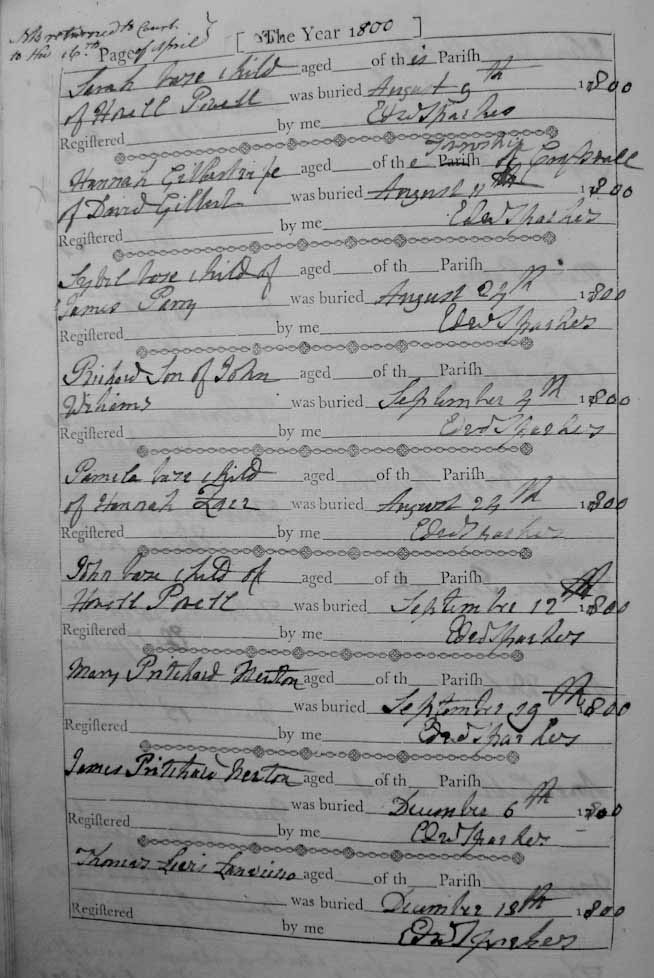 NB returned to Court
to the 16th of April
Page
[ The Year 1800 ]
Sarah base child aged of this Parish
of Howell Powell was buried August 9th 1800
Registered by me Edwd Sparkes
Hannah Gilbert wife aged of the Parish Township of
of David Gilbert was buried August 11th 1800
Registered by me Edwd Sparkes
Sybil base child of aged of th Parish
James Parry was buried August 24th 1800
Registered by me Edwd Sparkes
Richard Son of John aged of th Parish
Wiliams was buried September 4th 1800
Registered by me Edwd Sparkes
Pamela base child aged of th Parish
of Hannah was buried August 24th 1800
Registered by me Edwd Sparkes
John base child of aged of th Parish
Howell Powell was buried September 12th 1800
Registered by me Edwd Sparkes
Mary Pritchard Neston aged of th Parish
was buried September 29th 1800
Registered by me Edwd Sparkes
James Pritchard Neston aged of th Parish
was buried December 6th 1800
Registered by me Edwd Sparkes
Thomas Lewis aged of th Parish
was buried December 18th 1800
Registered by me Edwd Sparkes